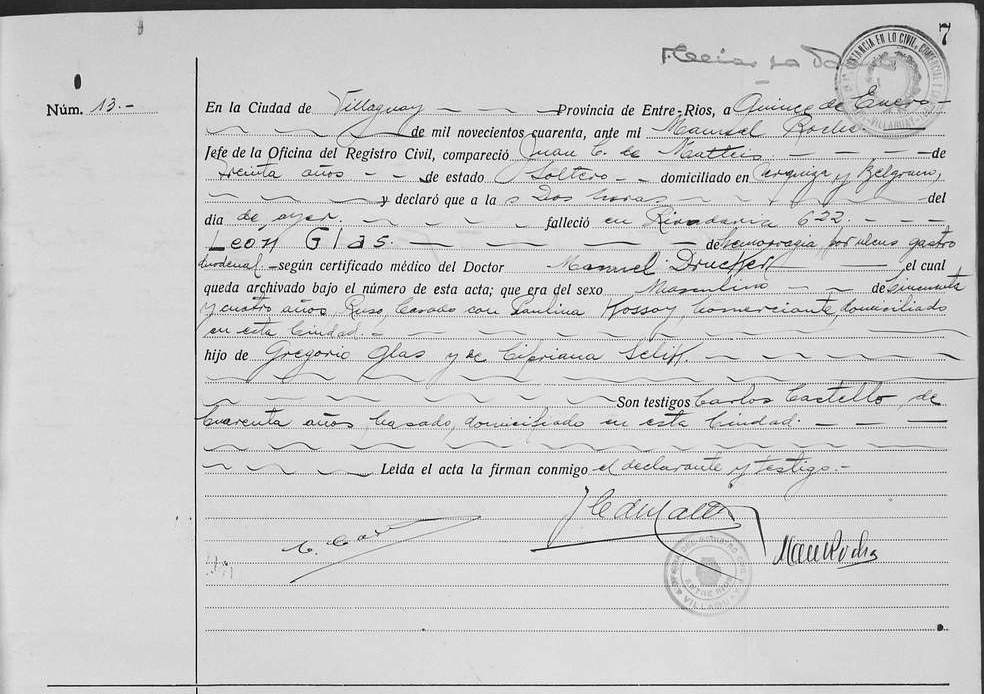 7
Núm. 13.-
En la Ciudad de Villaguay Provincia de Entre-Rios, a Quince de Enero
de mil novecientos cuarenta, ante mi Manuel Rocha
Jefe de la Oficina del Registro Civil, compareció Juan C. de Matteis de
treinta años de estado Soltero domiciliado en Urquiza y Belgrano,
y declaró que a las Dos horas del
dia de ayer. falleció en Rivadavia 622.
León Glas. de hemorragia por ulcus gastro
duodenal según certificado médico del Doctor Manuel Drucker el cual
queda archivado bajo el número de esta acta; que era del sexo Masculino de cincuenta
y cuatro años, Ruso, Casado con Paulina Kossoy, comerciante, domiciliado
en esta Ciudad.-
hijo de Gregorio Glas y de Cipriana
Son testigos Carlos Castello, de
Cuarenta años, casado, domiciliado en esta Ciudad.
Leida el acta la firman conmigo el declarante y testigo.-
ManRocha
ENTRE RIOS
VILLAGUAY